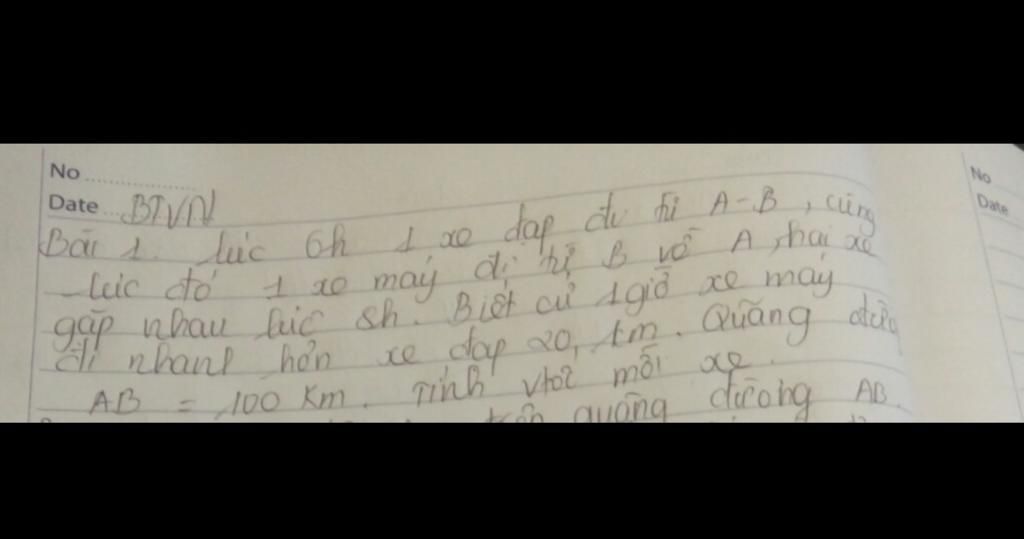 No
Date BTVN
Bài 1. lúc 6h 1 xe đạp đi từ A-B, cùng
lúc đó 1 xe máy đi từ B về A, hai xe
gặp nhau lúc 8h. Biết cứ 1 giờ xe máy
đi nhanh hơn xe đạp 20, km. Quãng
AB = 100 Km. Tính vtốc mỗi xe.
quãng đường AB.
No
Date